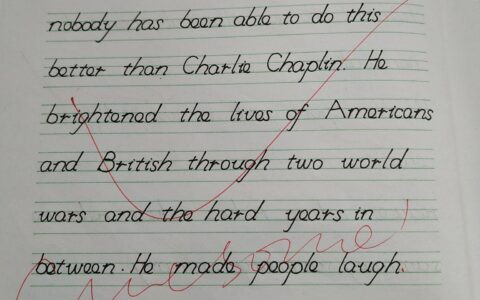 nobody has been able to do this
better than Charlie Chaplin. He
brightened the lives of Americans
and British through two world
wars and the hard years in
between. He made people laugh.
Awesome!